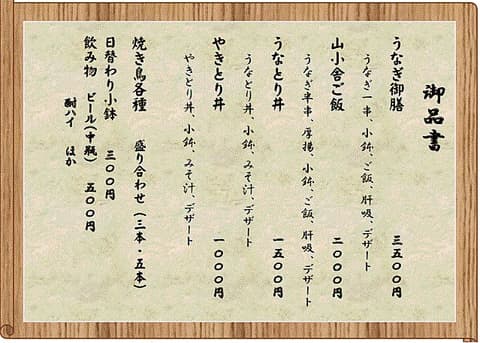 御品書
うなぎ御膳 三五〇〇円
うなぎ一串、小鉢、ご飯、肝吸、デザート
山小舎ご飯 二〇〇〇円
うなぎ半串、厚揚、小鉢、ご飯、肝吸、デザート
うなとり丼 一五〇〇円
うなとり丼、小鉢、みそ汁、デザート
やきとり丼 一〇〇〇円
やきとり丼、小鉢、みそ汁、デザート
焼き鳥各種 盛り合わせ(三本・五本)
日替わり小鉢 三〇〇円
飲み物 ビール(中瓶) 五〇〇円
酎ハイ ほか